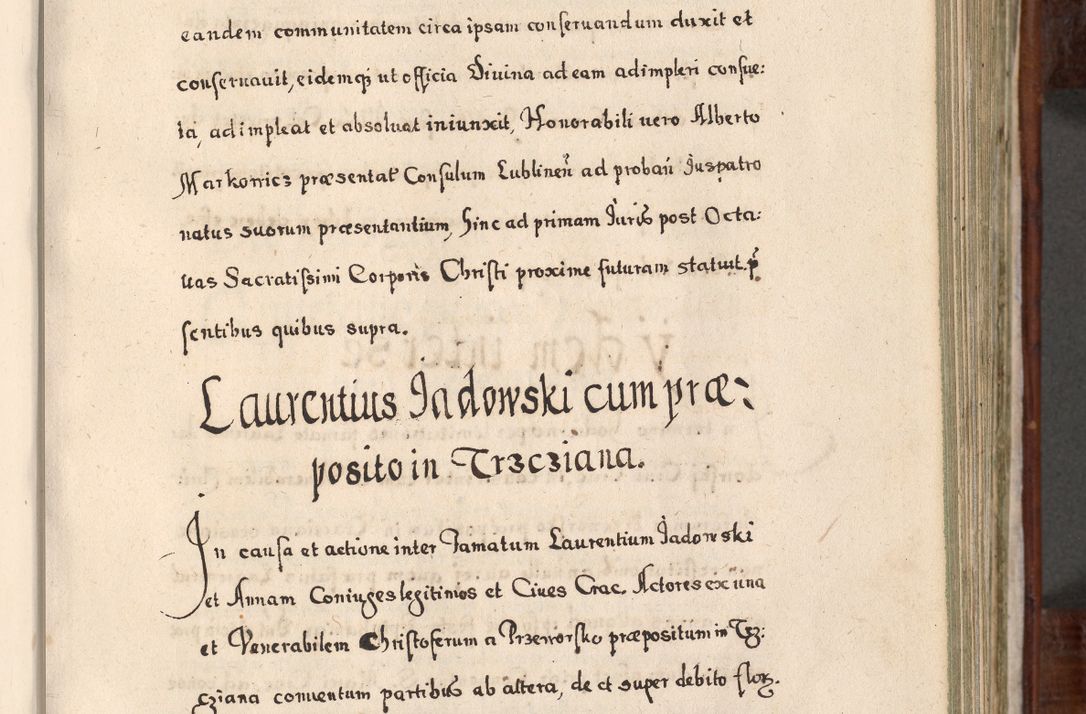 eandem communitatem circa ipsam conseruandum duxit et
conseruauit, eidemq́ ut officia Diuina ad eam adimpleri consue:
ta, adimpleat et absoluat iniunxit, Honorabili uero Alberto
Markowics præsentat Consulum Lublineñ ad probań Juspatro
natus suorum præsentantium, hinc ad primam Juris post Octa:
uas Sacratissimi Corporis Christi proxime futuram statuit. p̃
sentibus quibus supra.
Laurentius Jadowski cum præ:
posito in Trzcziana.
In causa et actione inter Famatum Laurentium Jadowski
et Annam Coniuges legitimos et Ciues Crac. Actores ex una
et Venerabilem Christoferum a Przeworsko præpositum in Trz:
cziana conuentum partibus ab altera, de et super debito florz.